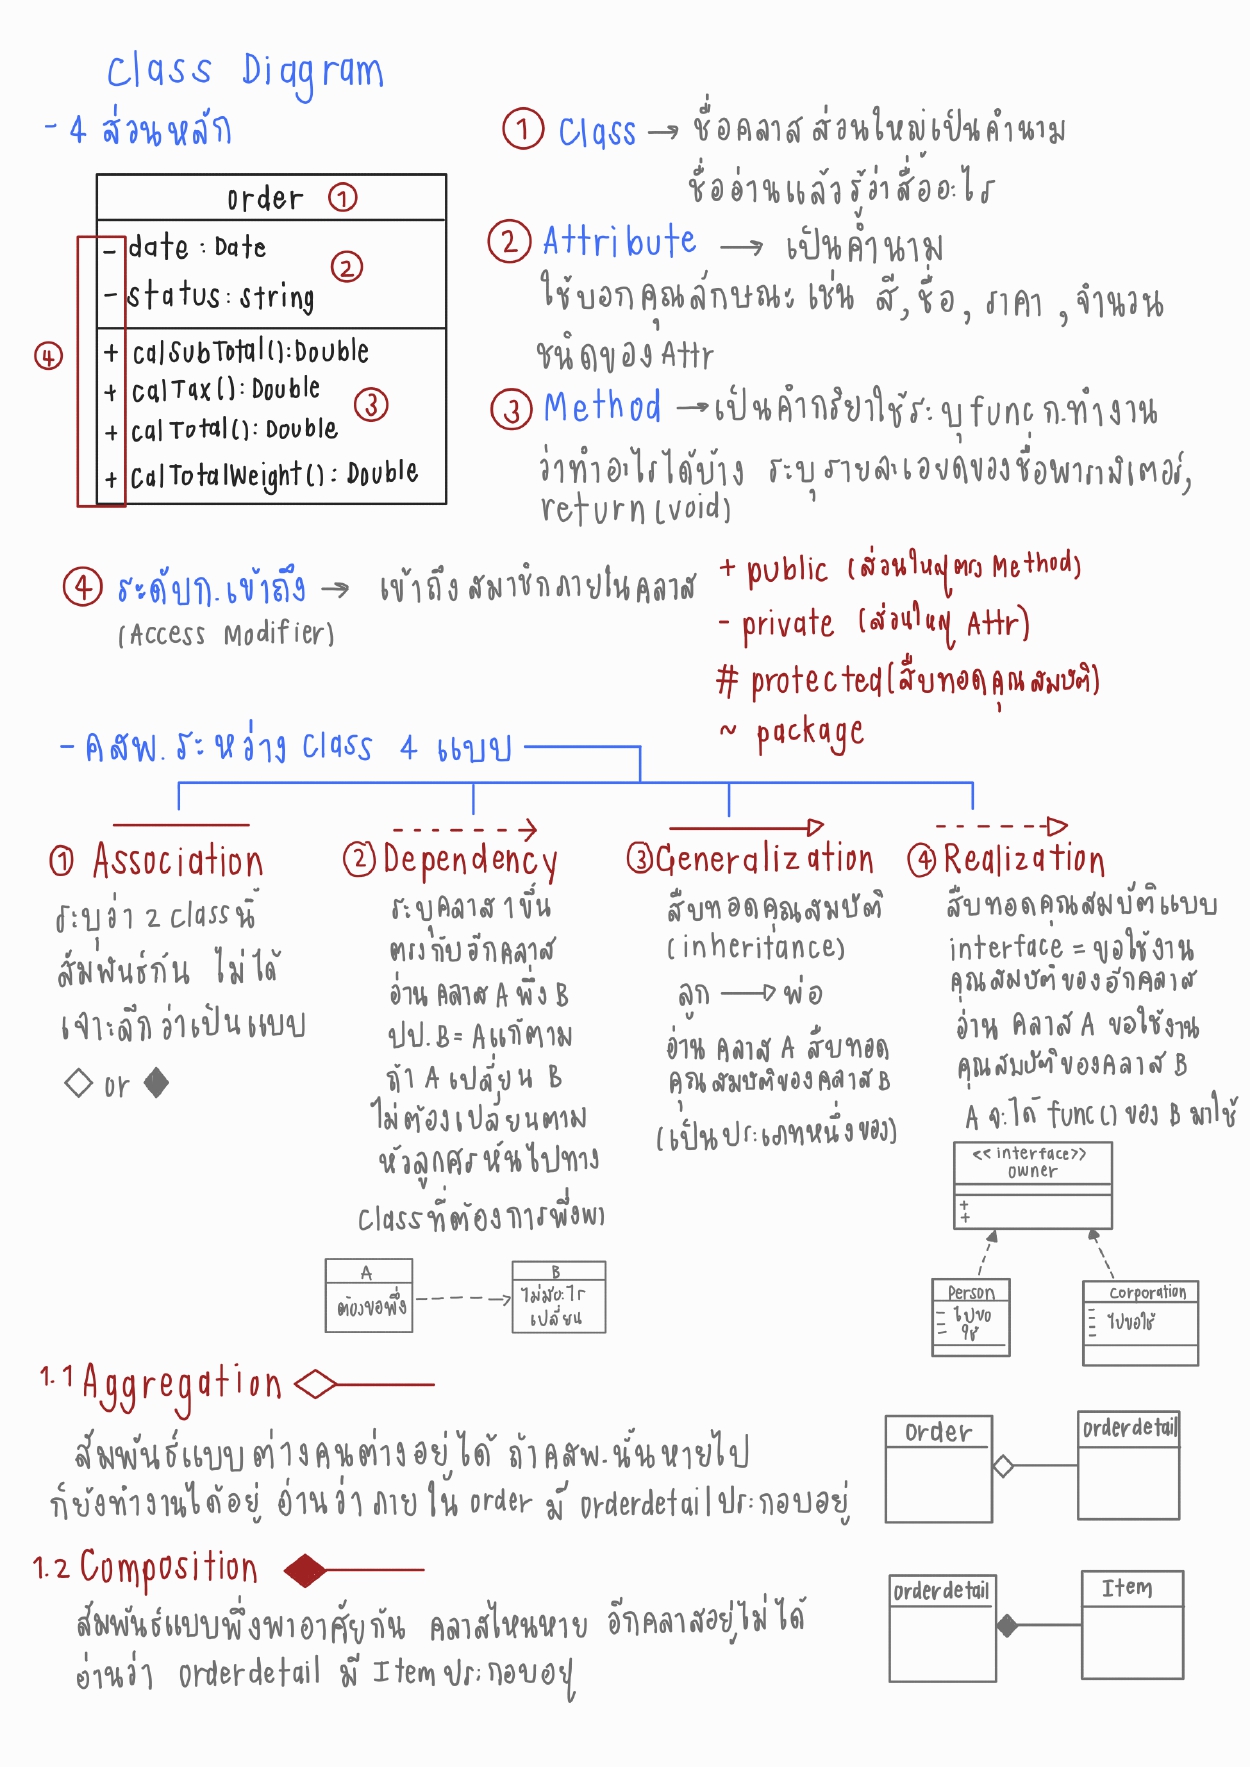 Class Diagram
- 4 ส่วนหลัก
order ①
- date : Date
②
- status : string
④
+ calSubTotal() : Double
+ calTax() : Double
③
+ calTotal() : Double
+ calTotalWeight() : Double
① Class → ชื่อคลาส ส่วนใหญ่เป็นคำนาม
ชื่ออ่านแล้วรู้ว่าสื่ออะไร
② Attribute → เป็นคำนาม
ใช้บอกคุณลักษณะ เช่น สี, ชื่อ, ราคา, จำนวน
ชนิดของ Attr
③ Method → เป็นคำกริยาใช้ระบุ func ก.ทำงาน
ว่าทำอะไรได้บ้าง ระบุรายละเอยดของชื่อพารามิเตอร์,
return (void)
④ ระดับก.เข้าถึง → เข้าถึงสมาชิกภายในคลาส
(Access Modifier)
+ public (ส่วนใหญ่ตรง Method)
- private (ส่วนใหญ่ Attr)
# protected (สืบทอดคุณสมบัติ)
~ package
- คสพ. ระหว่าง class 4 แบบ
① Association
ระบุว่า 2 class นี้
สัมพันธ์กัน ไม่ได้
เจาะลึกว่าเป็นแบบ
◇ or ◆
② Dependency
ระบุคลาส 1 ขึ้น
ตรงกับอีกคลาส
อ่าน คลาส A พึ่ง B
ปป. B = A แก้ตาม
ถ้า A เปลี่ยน B
ไม่ต้องเปลี่ยนตาม
หัวลูกศรหันไปทาง
class ที่ต้องการพึ่งพา
A
ต้องขอพึ่ง
B
ไม่มีอะไร
เปลี่ยน
③ Generalization
สืบทอดคุณสมบัติ
(inheritance)
ลูก ─▷ พ่อ
อ่าน คลาส A สืบทอด
คุณสมบัติของคลาส B
(เป็นประเภทหนึ่งของ)
④ Realization
สืบทอดคุณสมบัติแบบ
interface = ขอใช้งาน
คุณสมบัติของอีกคลาส
อ่าน คลาส A ขอใช้งาน
คุณสมบัติของคลาส B
A จะได้ func() ของ B มาใช้
<< interface>>
owner
+
+
Person
- ไปขอ
- ใช้
-
Corporation
- ไปขอใช้
-
-
-
1.1 Aggregation
สัมพันธ์แบบต่างคนต่างอยู่ได้ ถ้าคสพ.นั้นหายไป
ก็ยังทำงานได้อยู่ อ่านว่า ภายใน order มี orderdetail ประกอบอยู่
Order
orderdetail
1.2 Composition
สัมพันธ์แบบพึ่งพาอาศัยกัน คลาสไหนหาย อีกคลาสอยู่ไม่ได้
อ่านว่า orderdetail มี Item ประกอบอยู่
orderdetail
Item